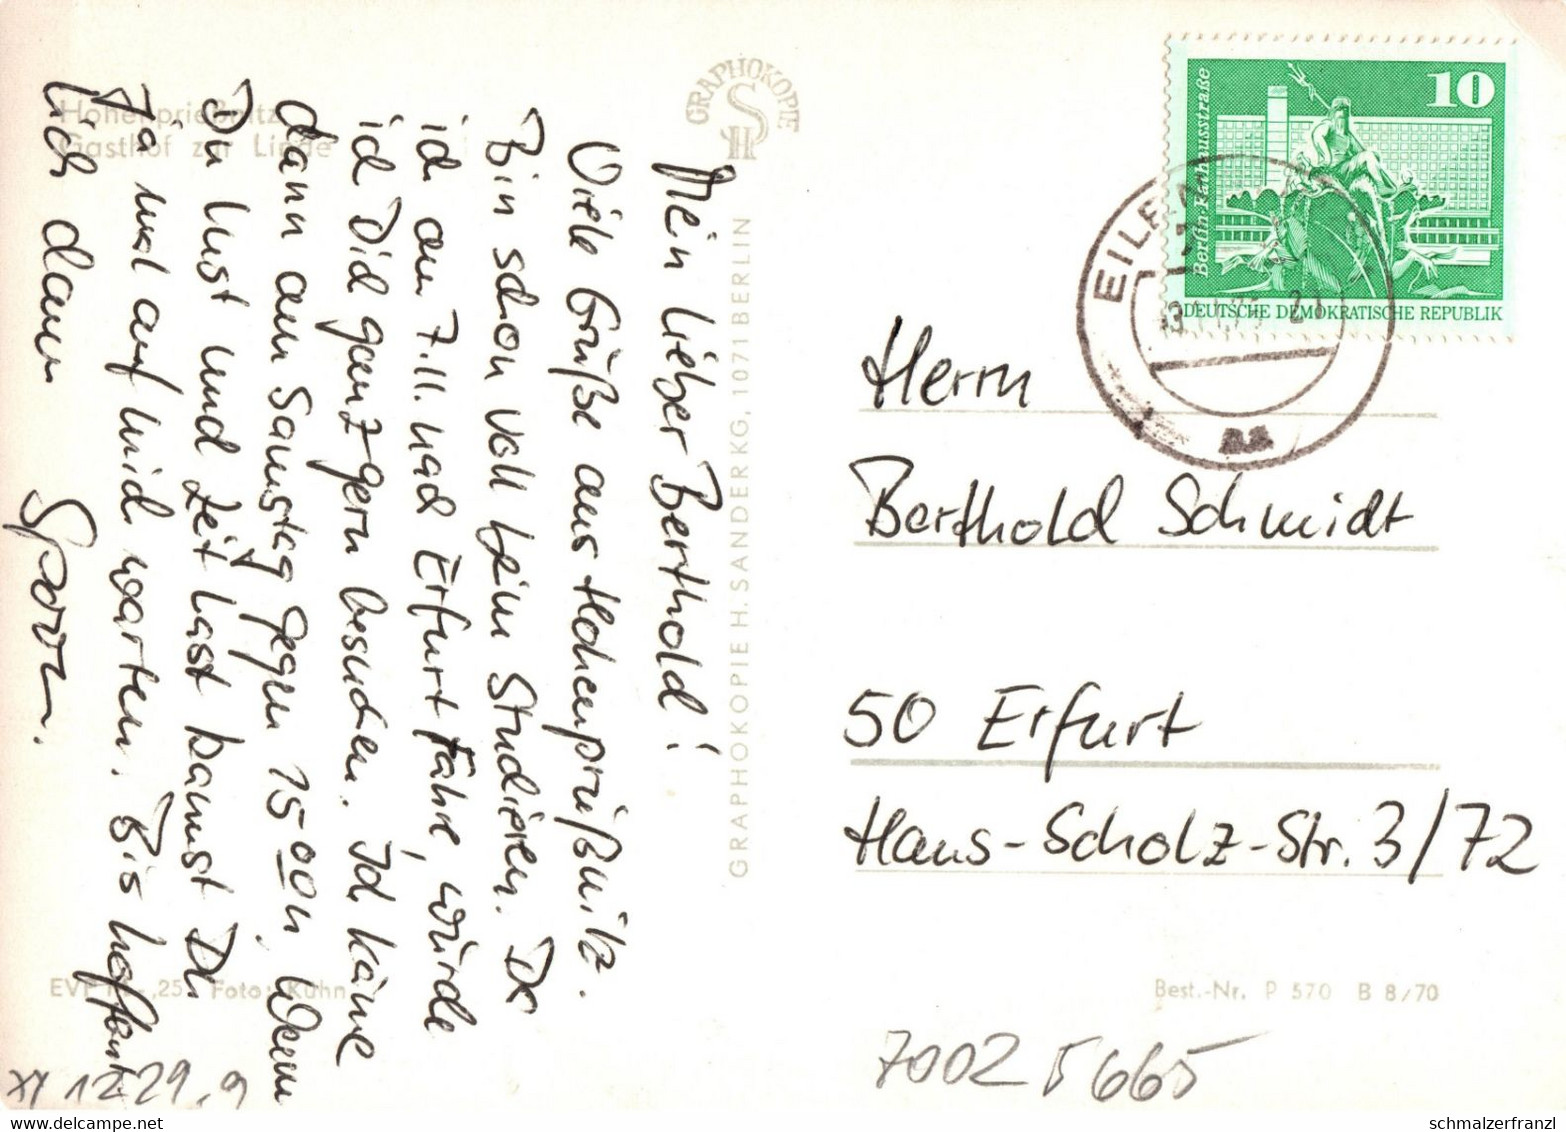 Hohenprießnitz
Gasthof zur Linde
Mein lieber Berthold!
Viele Grüße aus Hohenprießnitz.
Bin schon voll beim Studieren. Da
ich am 7.11. nach Erfurt fahre, würde
ich Dich ganz gern besuchen. Ich käme
dann am Samstag gegen 15 00 h, Wenn
Du Lust und Zeit hast kannst Du
ja mal auf mich warten. Bis hoffent-
lich dann
GRAPHOKOPIE
H S
GRAPHOKOPIE H. SANDER KG, 1071 BERLIN
EVP
-,25 Foto: Kühn
10
Berlin, Rathausstraße
DEUTSCHE DEMOKRATISCHE REPUBLIK
Herrn
Berthold Schmidt
50 Erfurt
Hans-Scholz-Str. 3/72
Best.-Nr. P 570 B 8/70
7002 5665
XI 12 29,9
schmalzerfranzl